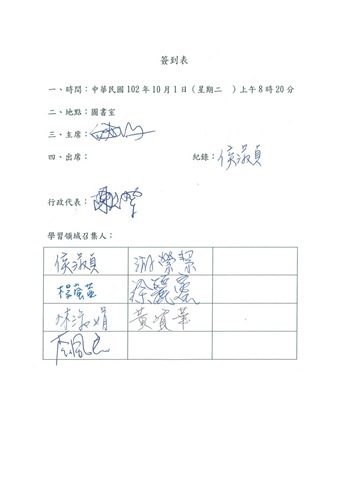 簽到表
一、時間：中華民國102年10月1日（星期二　）上午8時20分
二、地點：圖書室
三、主席：
四、出席：　紀錄：侯淑貞
行政代表：
學習領域召集人：
侯淑貞　游榮絜
楊螢萤　徐麗惠
林淑娟　黃濱華